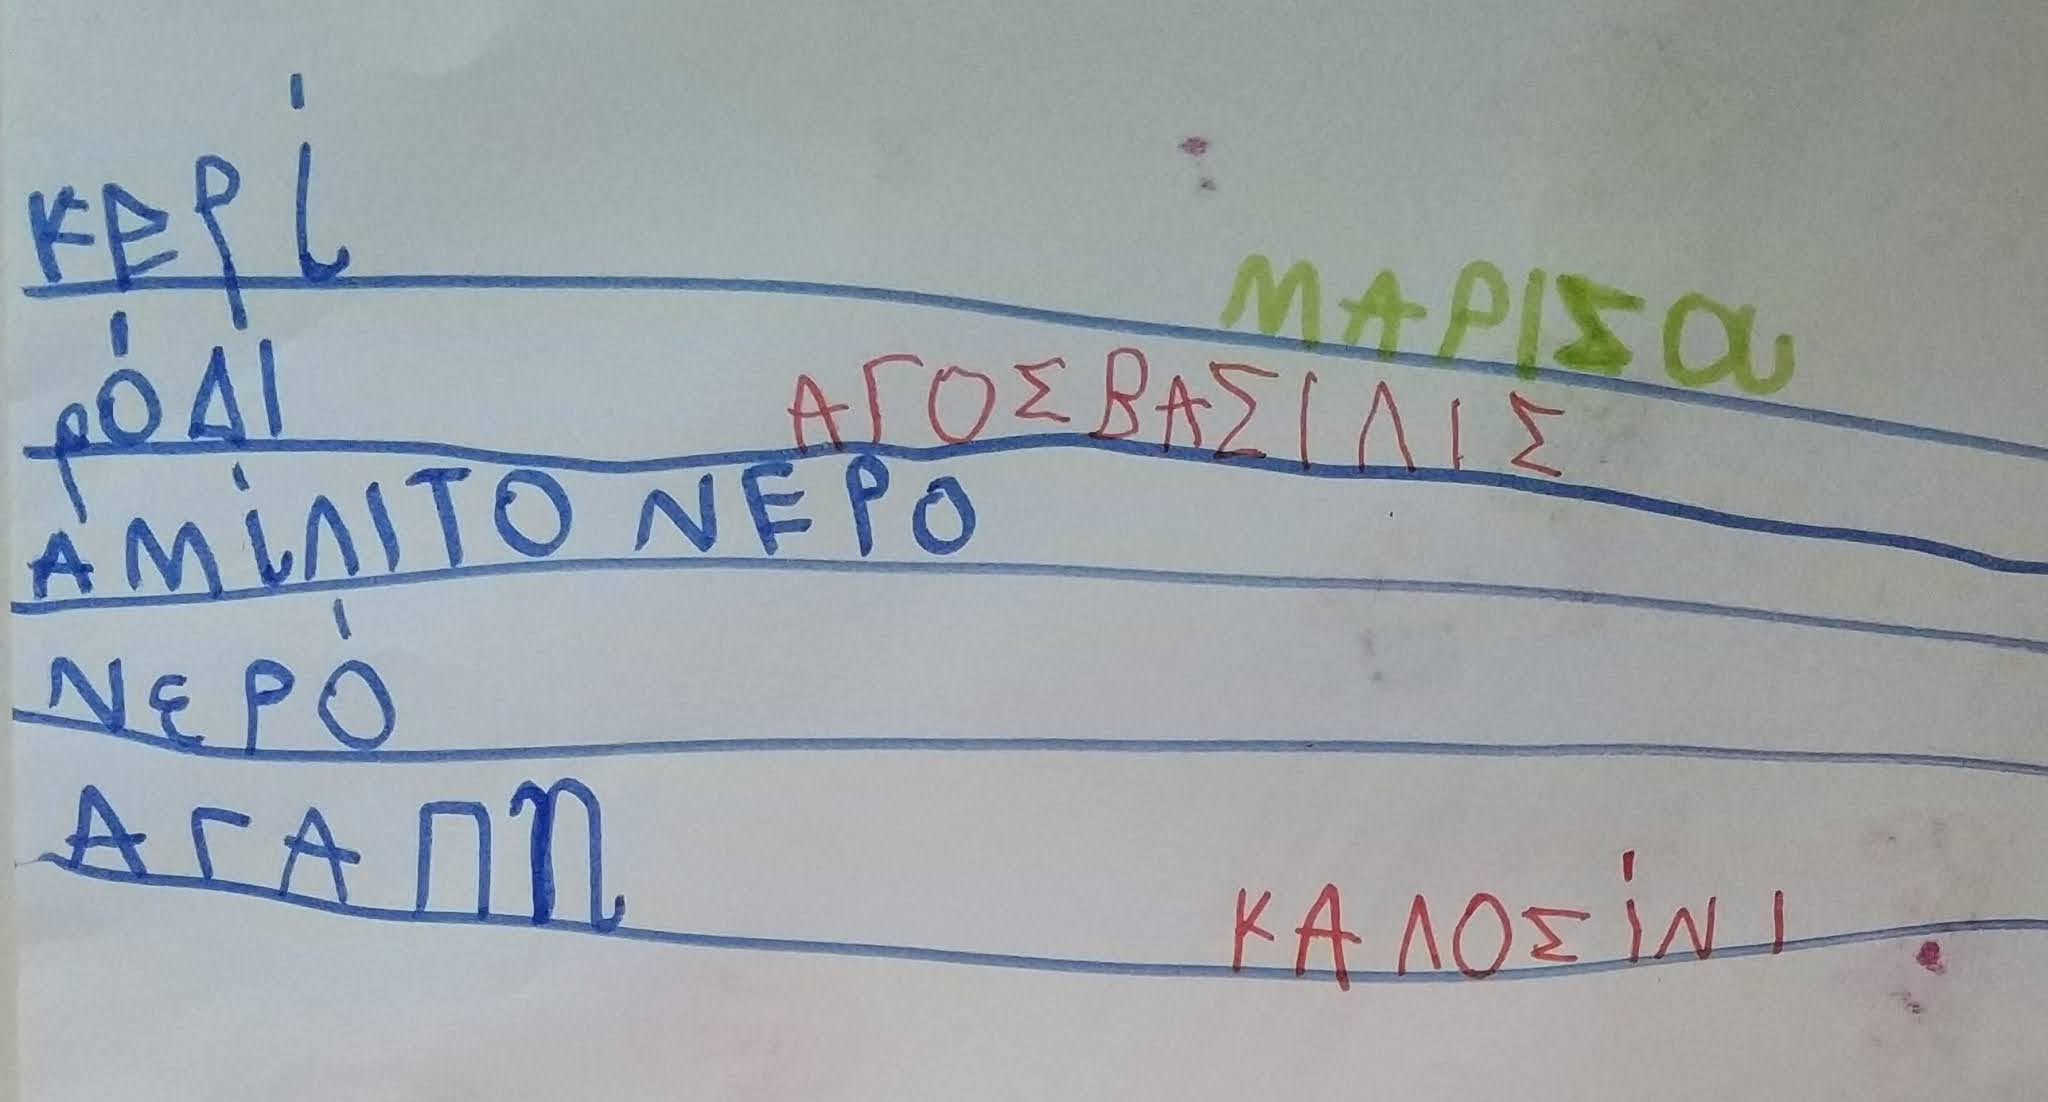 κερί
ΜΑΡΙΣα
ρόΔΙ
ΑΓΟΣΒΑΣΙΛΙΣ
ΑΜίΛΙΤΟ ΝΕΡΟ
ΝεΡό
ΑΓΑΠη
ΚΑΛΟΣίΝΙ